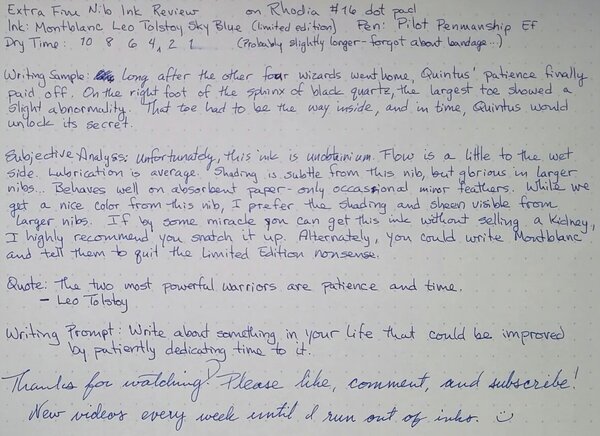 Extra Fine Nib Ink Review on Rhodia #16 dot pad
Ink: Montblanc Leo Tolstoy Sky Blue (limited edition) Pen: Pilot Penmanship EF
Dry Time: 10 8 6 4 2 1 (Probably slightly longer - forgot about bandage..)
Writing Sample: Long after the other four wizards went home, Quintus' patience finally
paid off. On the right foot of the sphinx of black quartz, the largest toe showed a
slight abnormality. That toe had to be the way inside, and in time, Quintus would
unlock its secret.
Subjective Analysis: Unfortunately, this ink is unobtainium. Flow is a little to the wet
side. Lubrication is average. Shading is subtle from this nib, but glorious in larger
nibs... Behaves well on absorbent paper - only occasional minor feathers. While we
get a nice color from this nib, I prefer the shading and sheen visible from
larger nibs. If by some miracle you can get this ink without selling a kidney,
I highly recommend you snatch it up. Alternately, you could write Montblanc
and tell them to quit the Limited Edition nonsense.
Quote: The two most powerful warriors are patience and time.
- Leo Tolstoy
Writing Prompt: Write about something in your life that could be improved
by patiently dedicating time to it.
Thanks for watching! Please like, comment, and subscribe!
New videos every week until I run out of inks. :)